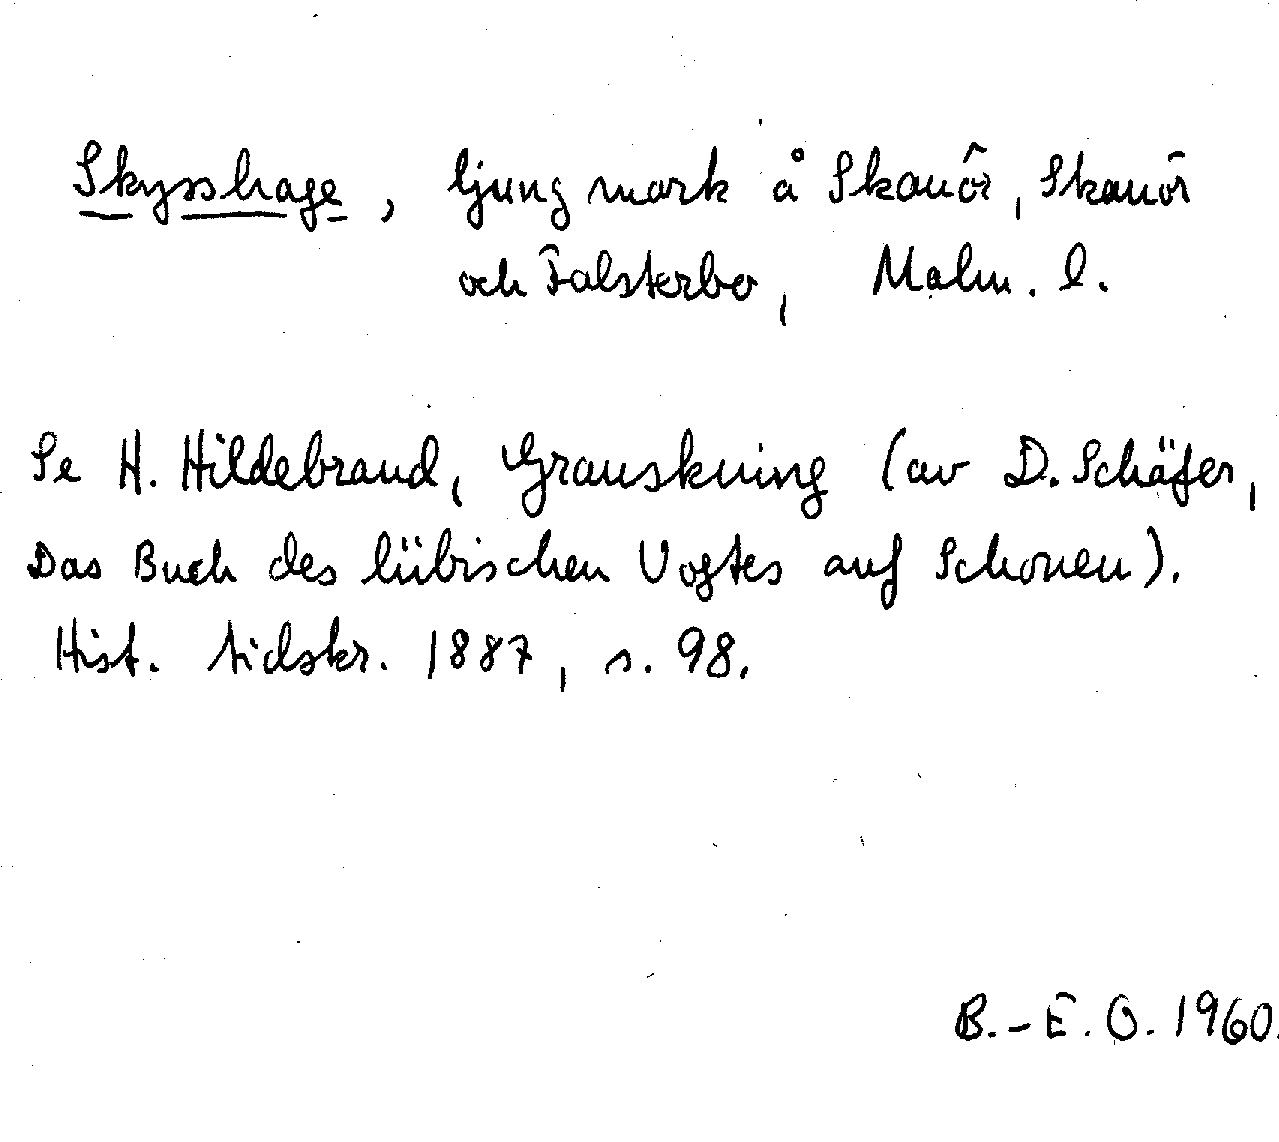 Skysshage, ljungmark å Skanör, Skanör
och Falsterbo, Malm. l.
Se H. Hildebrand, Granskning (av D. Schäfer,
Das Buch des lübischen Vogtes auf Schonen).
Hist. tidskr. 1887, s. 98.
B.-E. O. 1960.